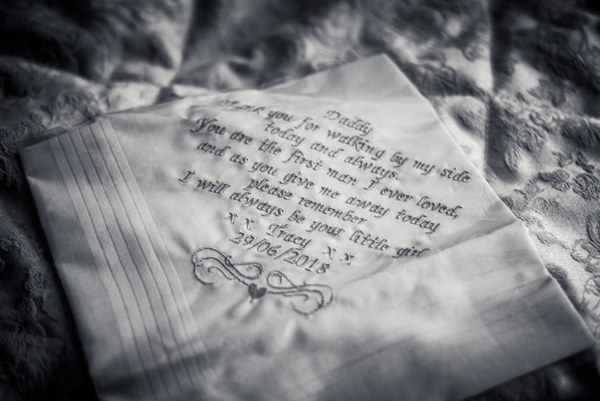 Daddy
Thank you for walking by my side
today and always.
You are the first man I ever loved,
and as you give me away today
please remember
I will always be your little girl
x x Tracy x x
29/06/2018